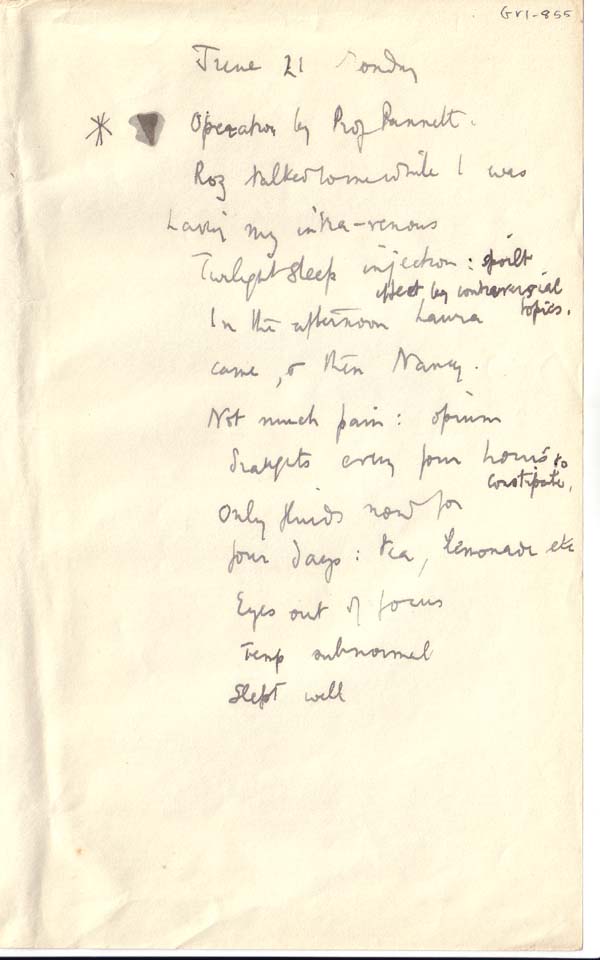 GRG-855
June 21 Monday
Operation by Prof Pannett.
Roz talked to me while I was
having my intra-venous
Twilight Sleep injection: spoilt
effect by controversial
topics.
In the afternoon Laura
came, & then Nancy.
Not much pain: opium
draughts every four hours to
constipate.
Only fluids now for
four days: tea, lemonade etc
Eyes out of focus
Temp subnormal
Slept well